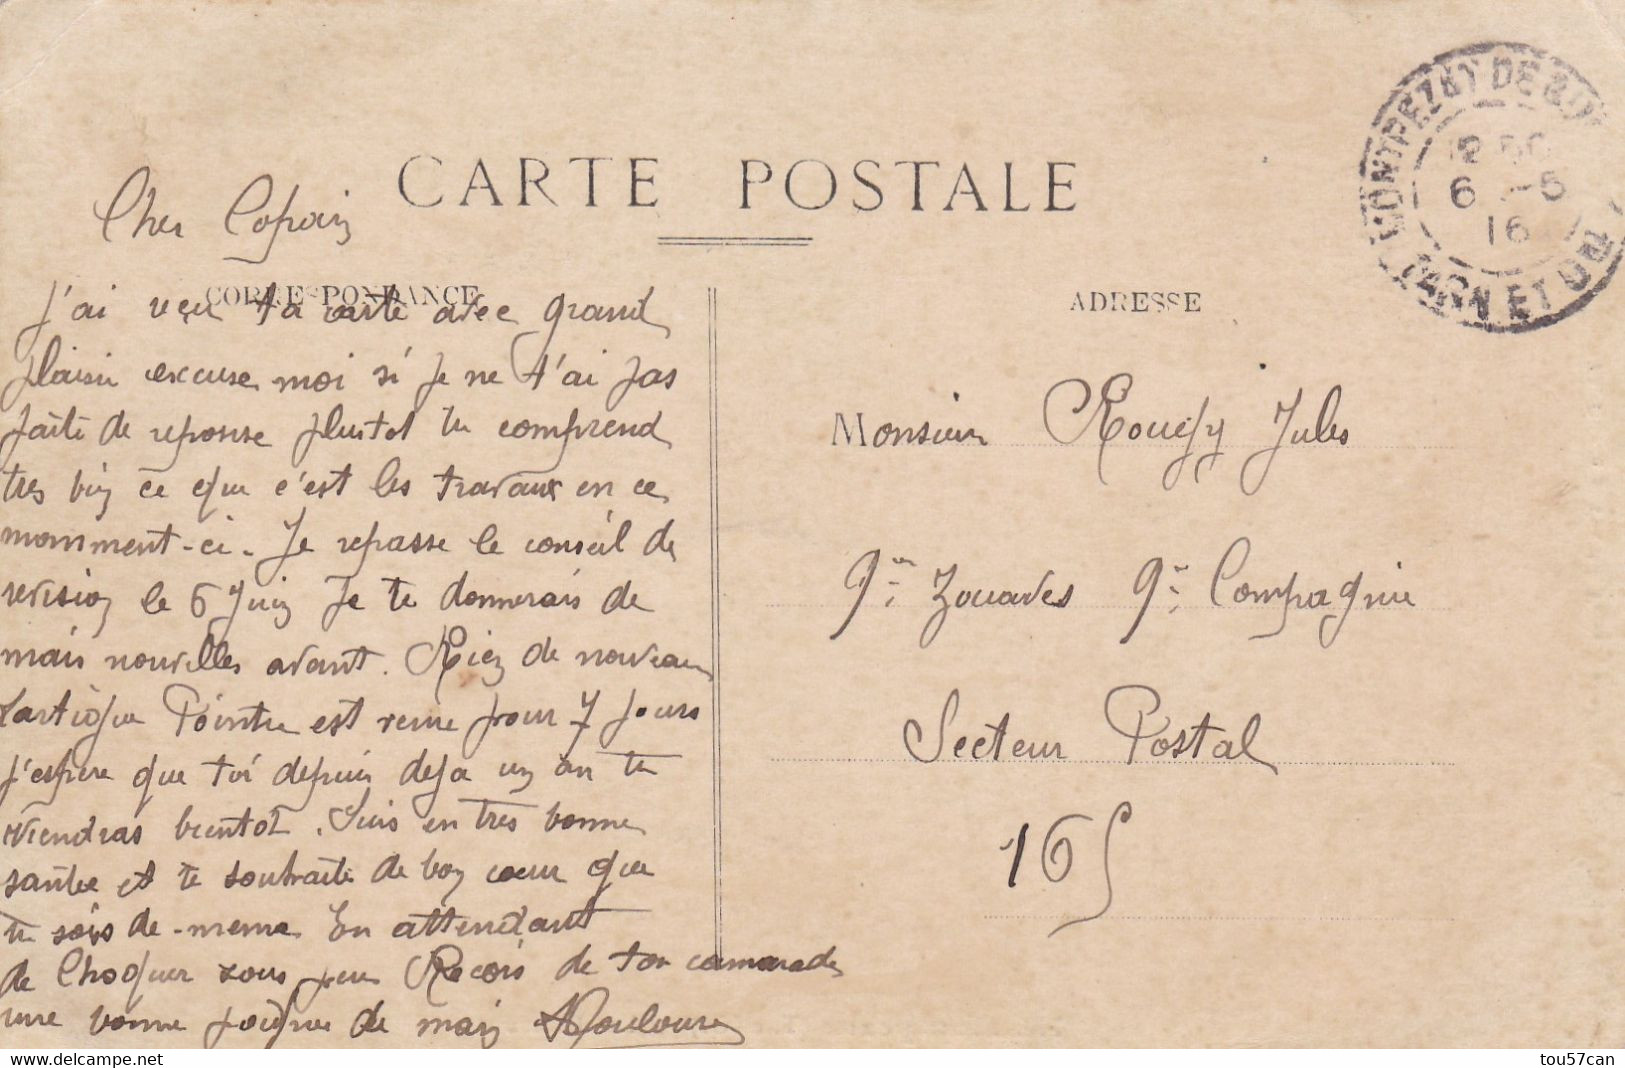 CARTE POSTALE
Cher Copain
CORRESPONDANCE
J'ai reçu ta carte avec grand
plaisir excuse moi si je ne t'ai pas
faite de reponse plustot tu comprend
tres bien ce que c'est les travaux en ce
momment-ci. Je repasse le conseil de
revision le 6 Juin Je te donnerais de
mais nouvelles avant. Rien de nouveau
Lartigue Pointu est venu pour 7 jours
j'espere que toi depuis deja un an tu
viendras bientot. Suis en tres bonne
santee et te souhaite de bon coeur que
tu sois de-meme En attendant
de Choquer sous peu Recois de ton camarade
une bonne poigne de main
ADRESSE
Monsieur Jules
9e Zouaves 9e Compagnie
Secteur Postal
165
MONTPEZAT DE QU
6 -5
16
TARN ET G
delcampe.net
tou57can